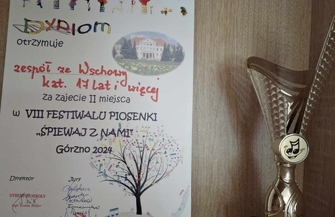 Dyplom
otrzymuje
zespół ze Wschowy
kat. 17 lat i więcej
za zajęcie II miejsca
w VIII FESTIWALU PIOSENKI
„ŚPIEWAJ Z NAMI"
Górzno 2024
Dyrektor
Jury